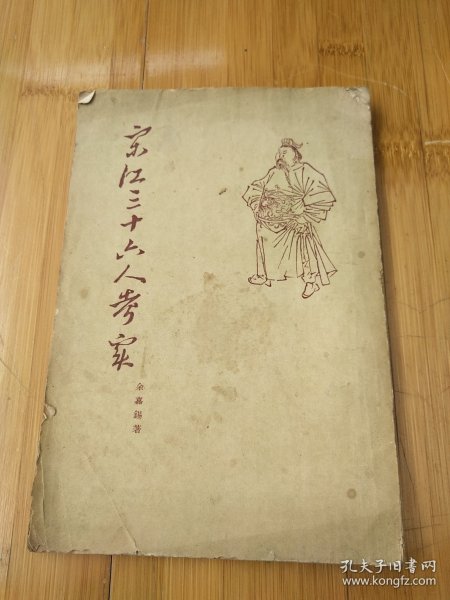 宋江三十六人考实
余嘉锡著
孔夫子旧书网
www.kongfz.com